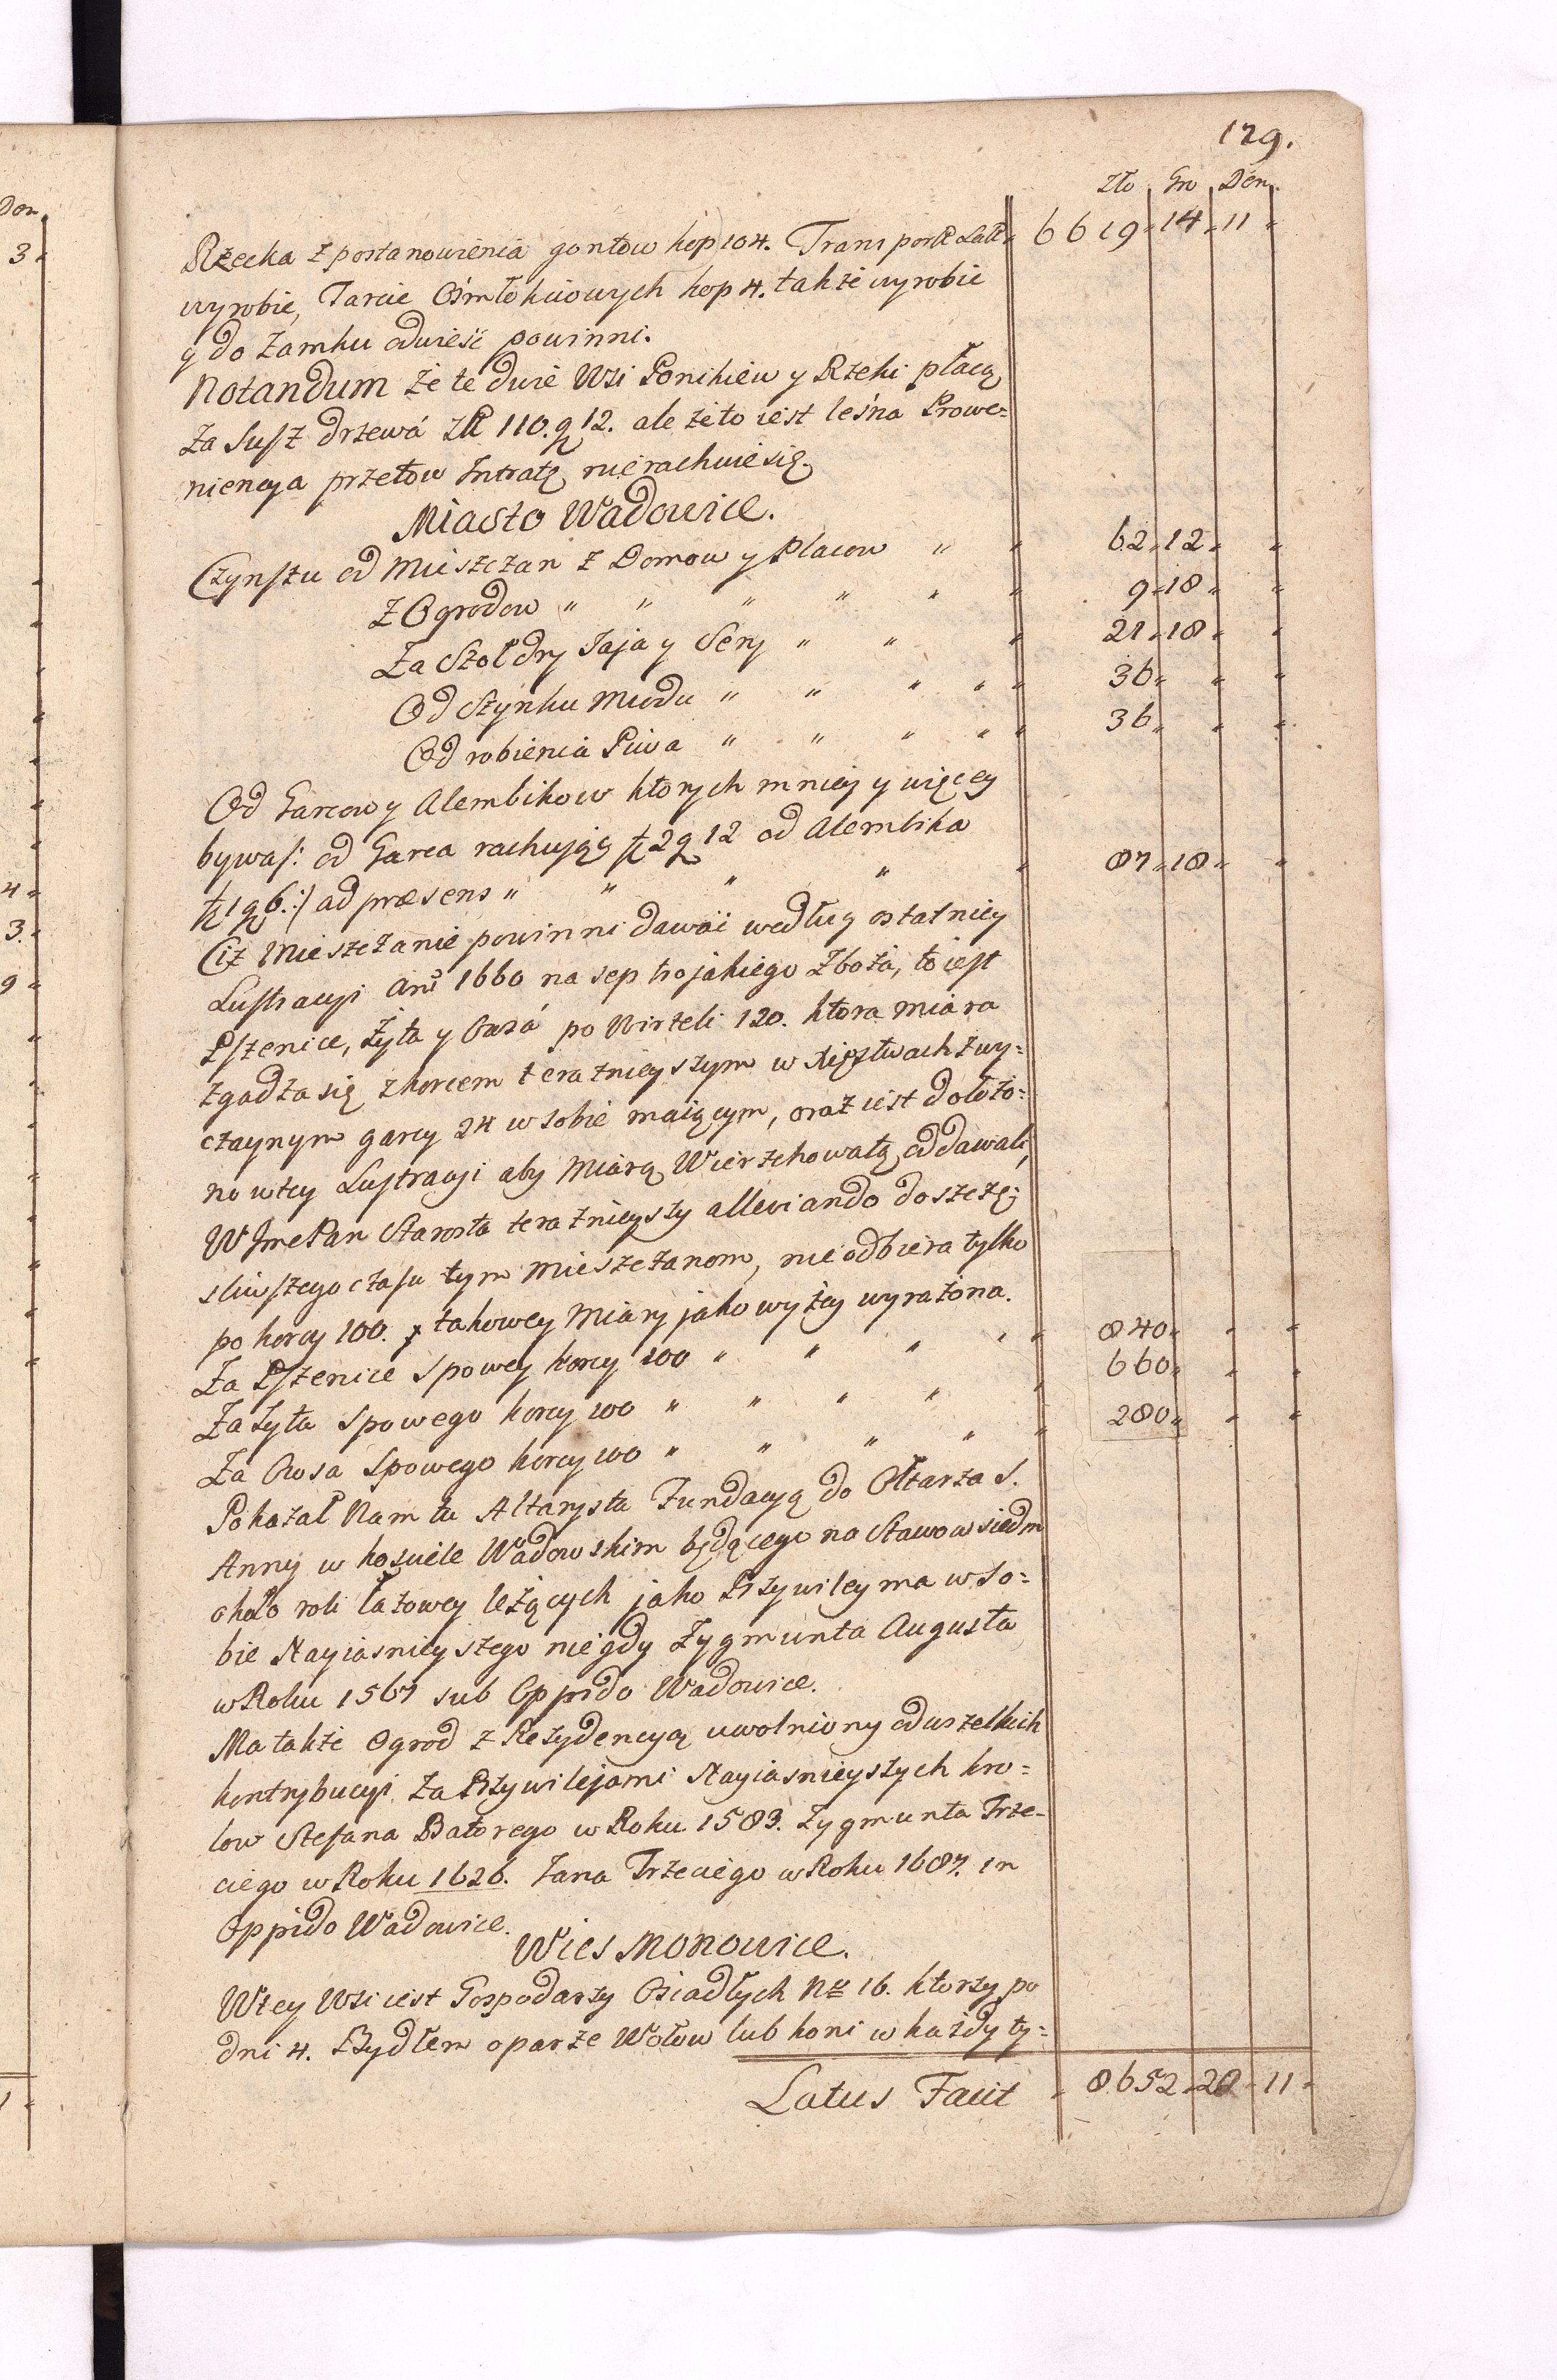 129.
Zło Gro Den.
Rzecka z postanowienia gontow kop 104. Transport Latt. 6619 " 14 " 11 "
wyrobić, Tarcic Ośmłokciowych kop 4. także wyrobic
y do Zamku odwieść powinni.
Notandum że te dwie Wsi Ponikiew y Rzeki płacą
za Susz drzewá Zł 110. g 12. ale że to iest leśna Prowe=
niencya przeto w Intratę nierachuie się.
Miasto Wadowice.
Czynszu od Mieszczan z Domow y Placow " " 62 " 12 " "
Z Ogrodow " " " " " " 9 " 18 " "
Za Szołdry Jaja y Sery " " " 21 " 18 " "
Od Szynku Miodu " " " " " 36 " " "
Od robienia Piwa " " " " " 36 " " "
Od Garcow y Alembikow ktorych mniey y więcey
bywa/: od Garca rachując zł 2 g 12 od Alembika
zł 1 g 6.:/ ad præsens " " " " " 87 " 18 " "
Ciż Mieszczanie powinni dawać według ostatniey
Lustracyi Anni 1660 na sep trojakiego Zboża, to iest
Pszenice, Żyta y Owsá po Wirteli 120. ktora miara
zgadza się z korcem teraznieyszym w Xięstwach zwy=
czaynym garcy 24 w sobie maiącym, oraz iest dołożo=
no w tey Lustracyi aby Miarą Wierzchowatą oddawali,
W Jme Pan Starosta teraznieyszy alleviando do szczę=
sliwszego czasu tym Mieszczanom, nie odbiera tylko
po korcy 100. takowey Miary jako wyżey wyrażona.
Za Pszenice Spowey korcy 100 " " " " " 840 " " "
Za Żyta Spowego korcy 100 " " " " " 660 " " "
Za Owsa Spowego korcy 100 " " " " " 280 " " "
Pokazał Nam tu Altarysta Fundacyą do Ołtarza S.
Anny w kosciele Wadowskim będącego na Stawow siedm
około roli łazowey leżących jako Przywiley ma w so=
bie Nayiasnieyszego niegdy Zygmunta Augusta
w Roku 1567 sub Oppido Wadowice.
Ma także Ogrod z Rezydencyą uwolniony od wszelkich
kontrybucyi za Przywilejami Nayiasnieyszych kro=
low Stefana Batorego w Roku 1583. Zygmunta Trze=
ciego w Roku 1626. Jana Trzeciego w Roku 1687. in
Oppido Wadowice.
Wies Monowice.
W tey Wsi iest Gospodarzy Osiadłych Nro 16. ktorzy po
dni 4. Bydłem o parze Wołow lub koni w każdy ty=
Latus Facit " 8652 " 20 " 11 "